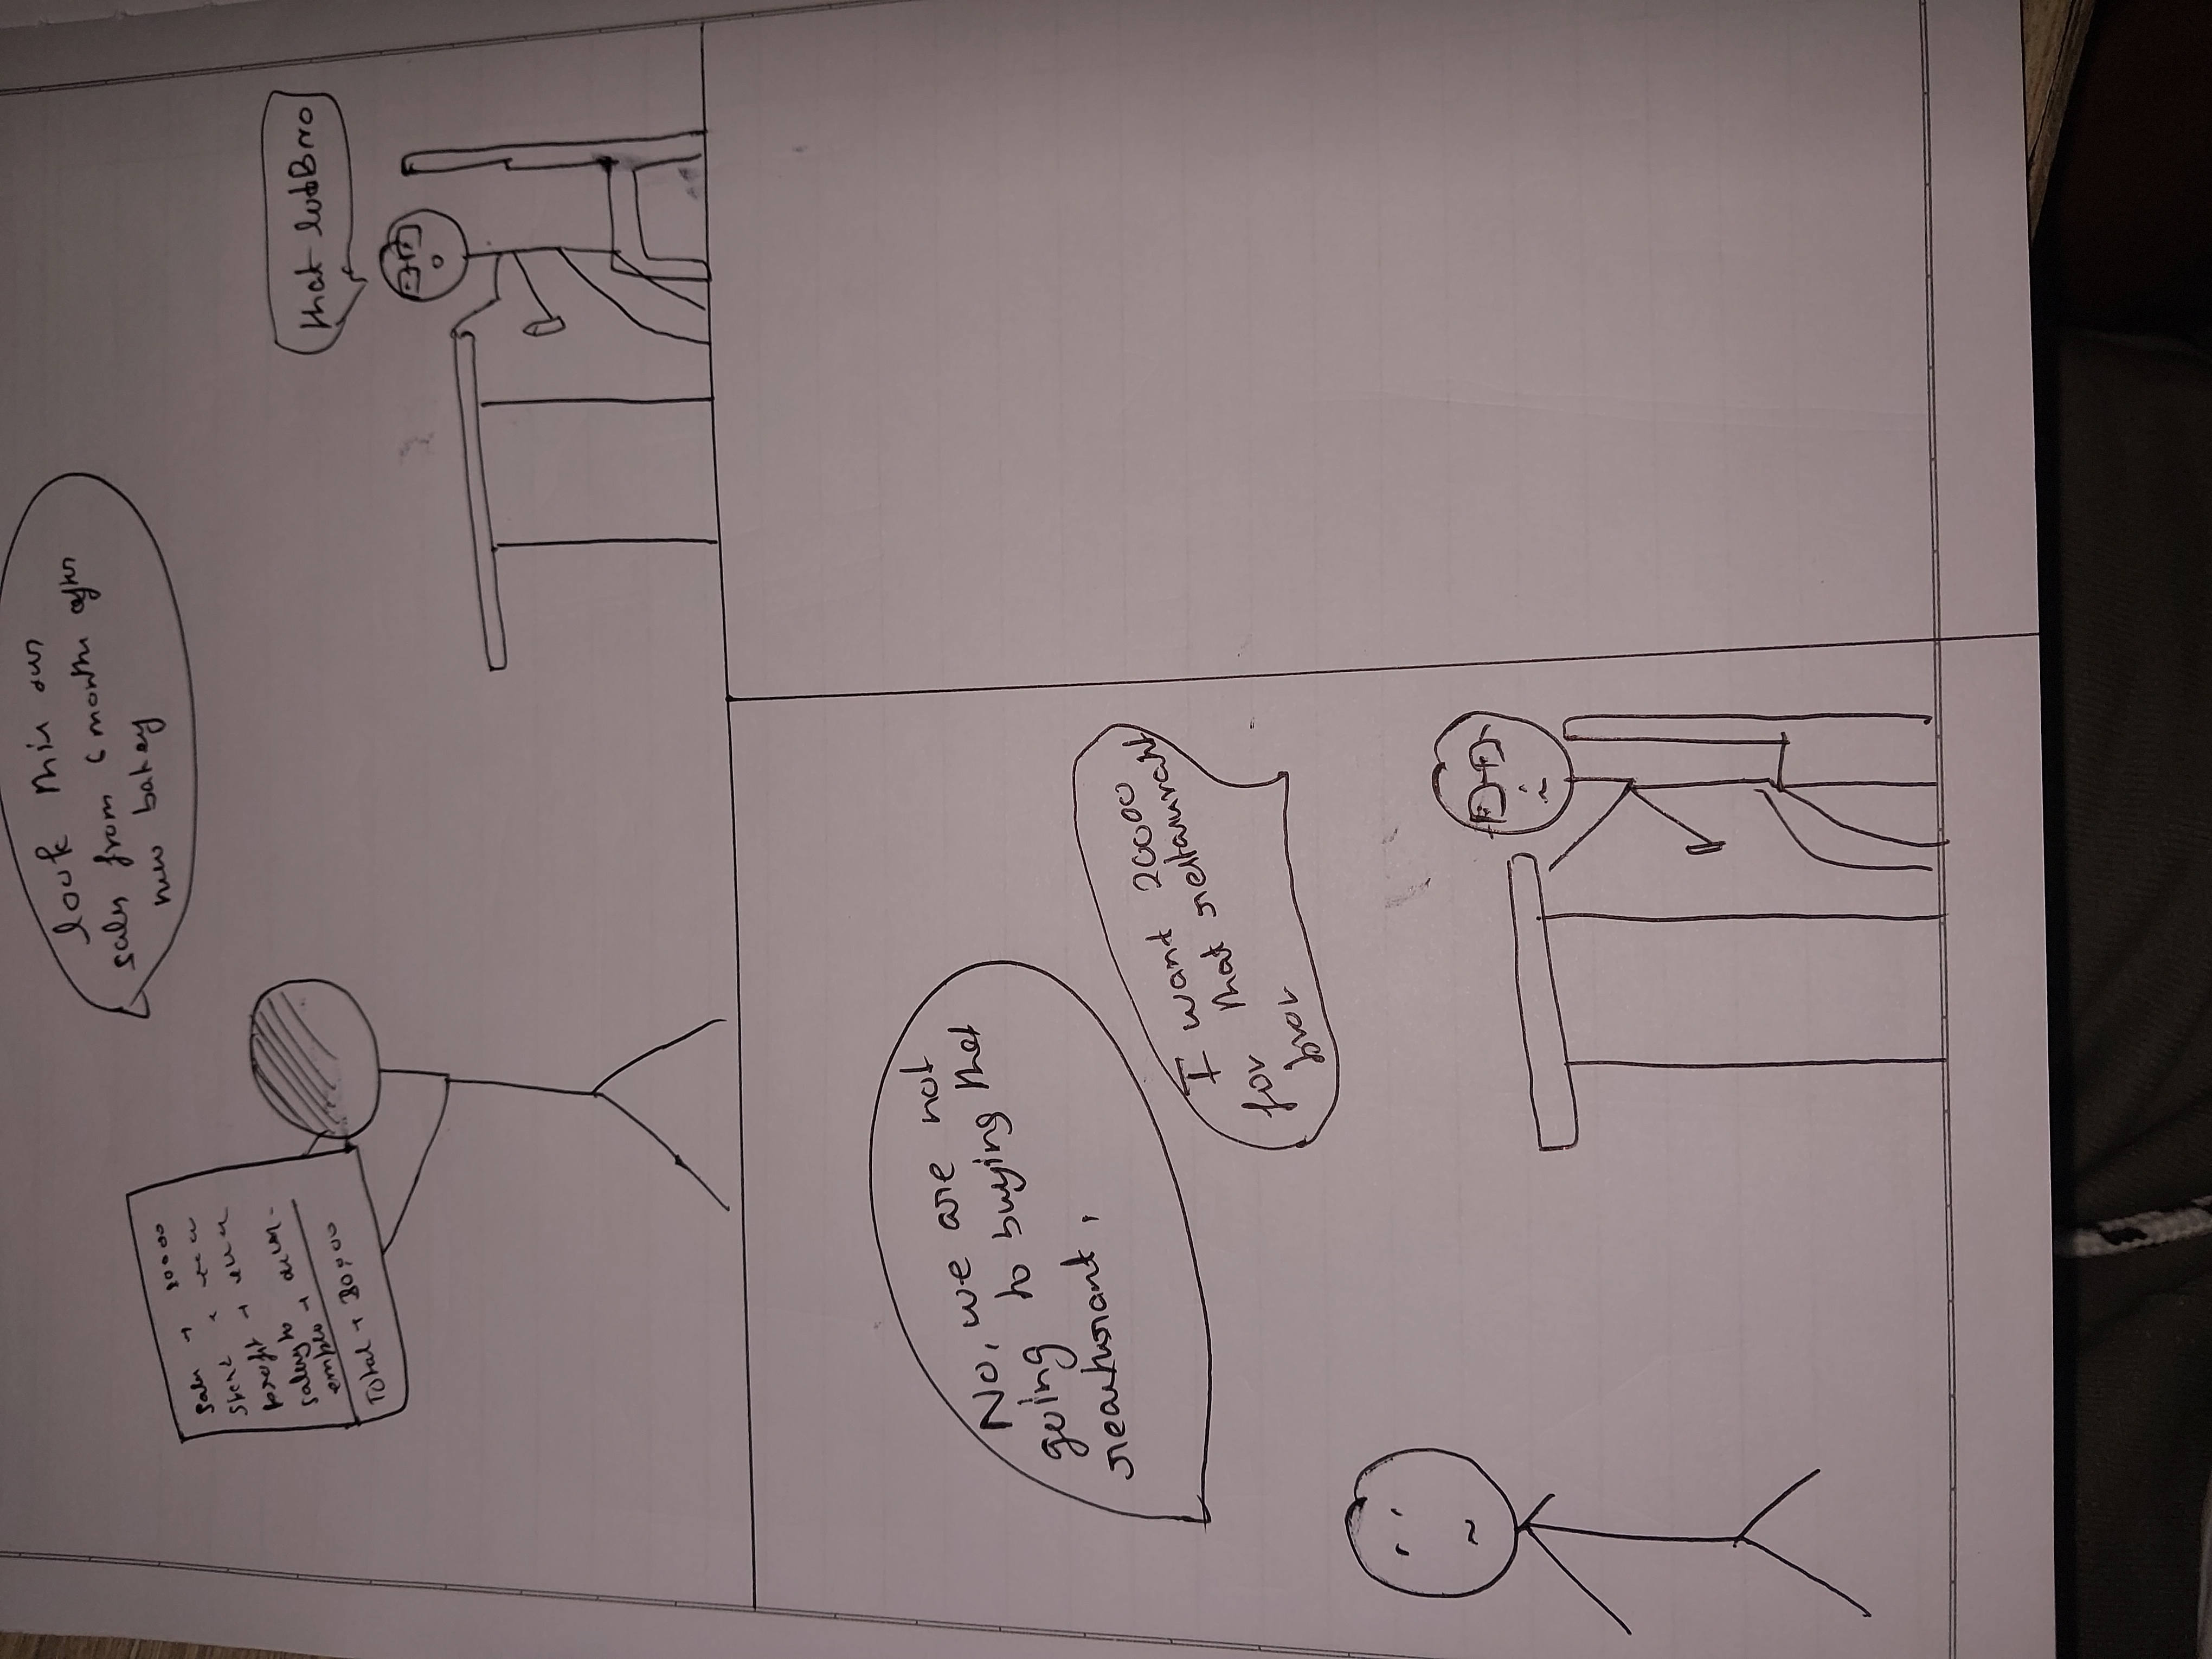 look this our
sales from 6 months after
new bakey
sales →
spend
profit →
salary to
emplo →
Total →
that lot Bro
No, we are not
going to buying that
I want 20000
for that restaurant
bror